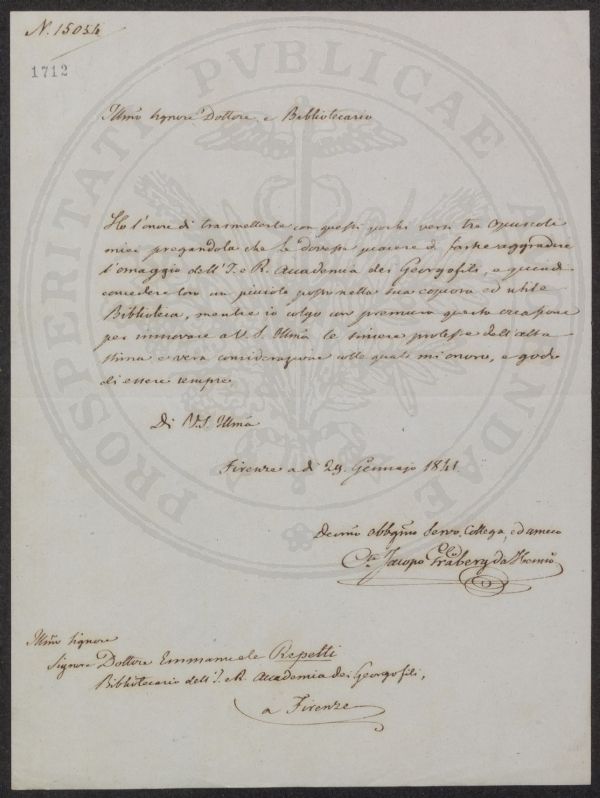 N. 15034
1712
PROSPERITATI PVBLICAE AVGENDAE
Illmo Signore Dottore e Bibliotecario
Ho l'onore di trasmetterle con questi pochi versi tre Opuscoli
miei pregandola che le dovesse piacere di farne aggradire
l'omaggio dell'I. e R. Accademia dei Georgofili, e quindi
concedere loro un piccolo posto nella sua copiosa ed utile
Biblioteca, mentre io colgo con premura questa occasione
per rinnovare a V. S. Illma le sincere proteste dell'alta
stima e vera considerazione colle quali mi onoro, e godo
di essere sempre
Di V.S. Illma
Firenze a di 29. Gennajo 1841
Devmo obbgmo Servo, Collega, ed amico
Cte Jacopo Gråberg da Hemsö
Illmo Signore
Signore Dottore Emmanuele Repetti
Bibliotecario dell'I. e R. Accademia dei Georgofili,
a Firenze